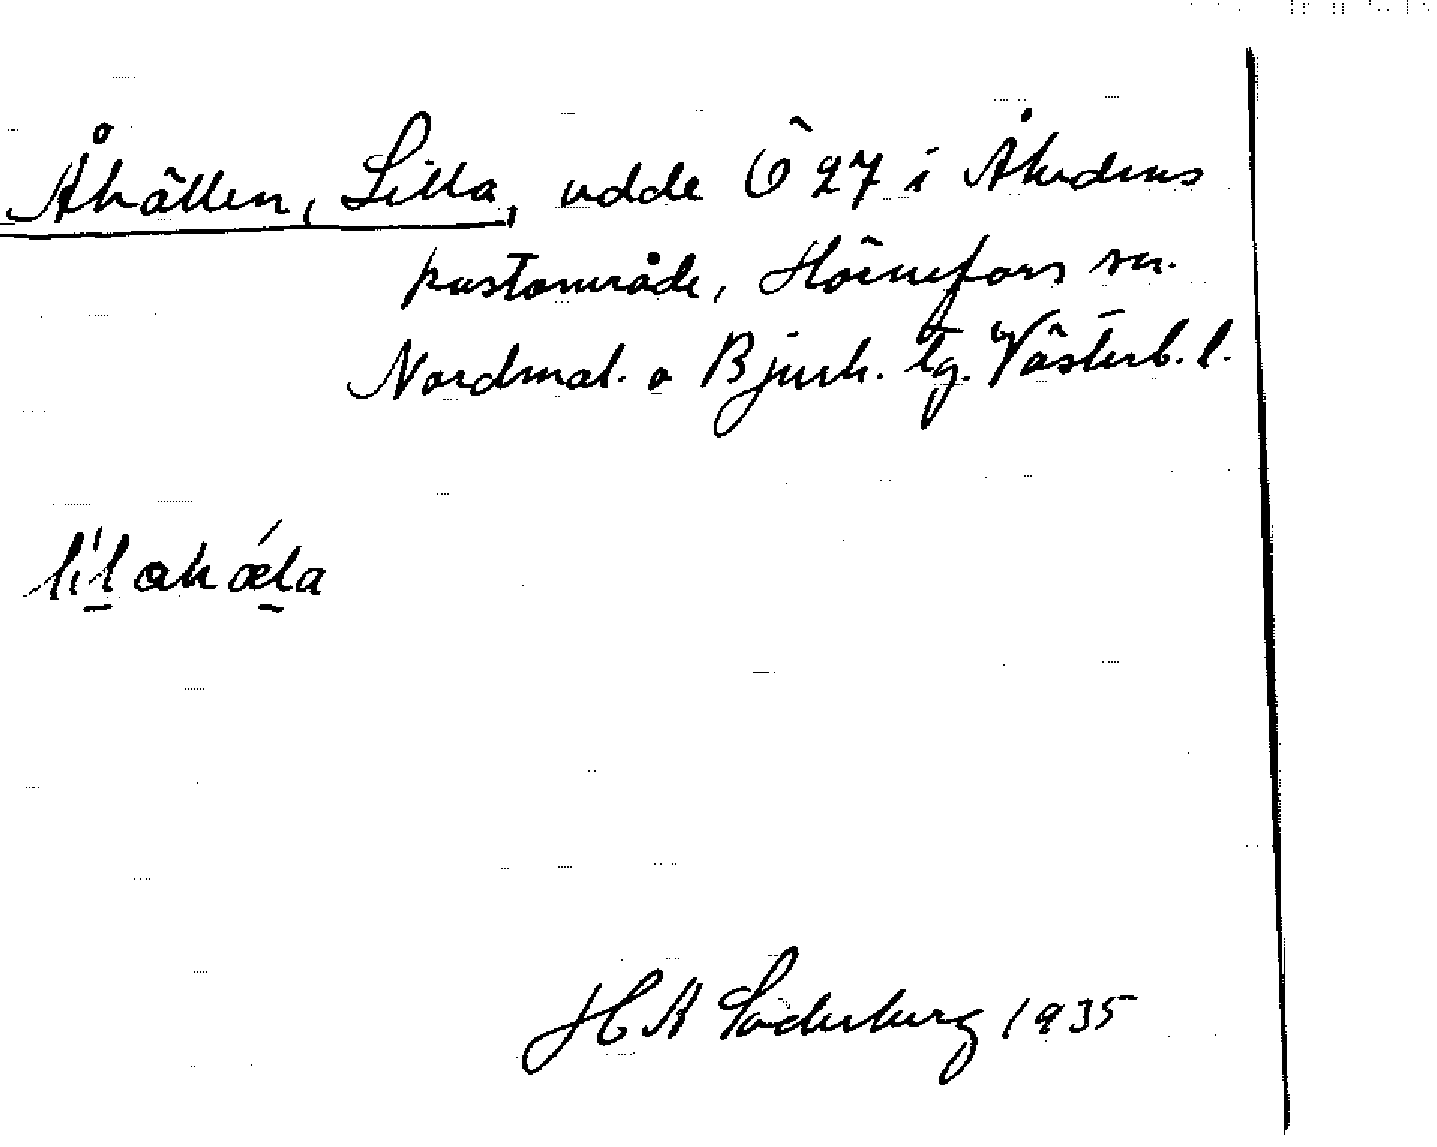 Åhällen, Lilla, udde Ö 27 i Åhedens
postområde, Hörnefors sn.
Nordmal. o Bjurh. tg. Västerb. l.
lilahæla
H A Söderberg 1935